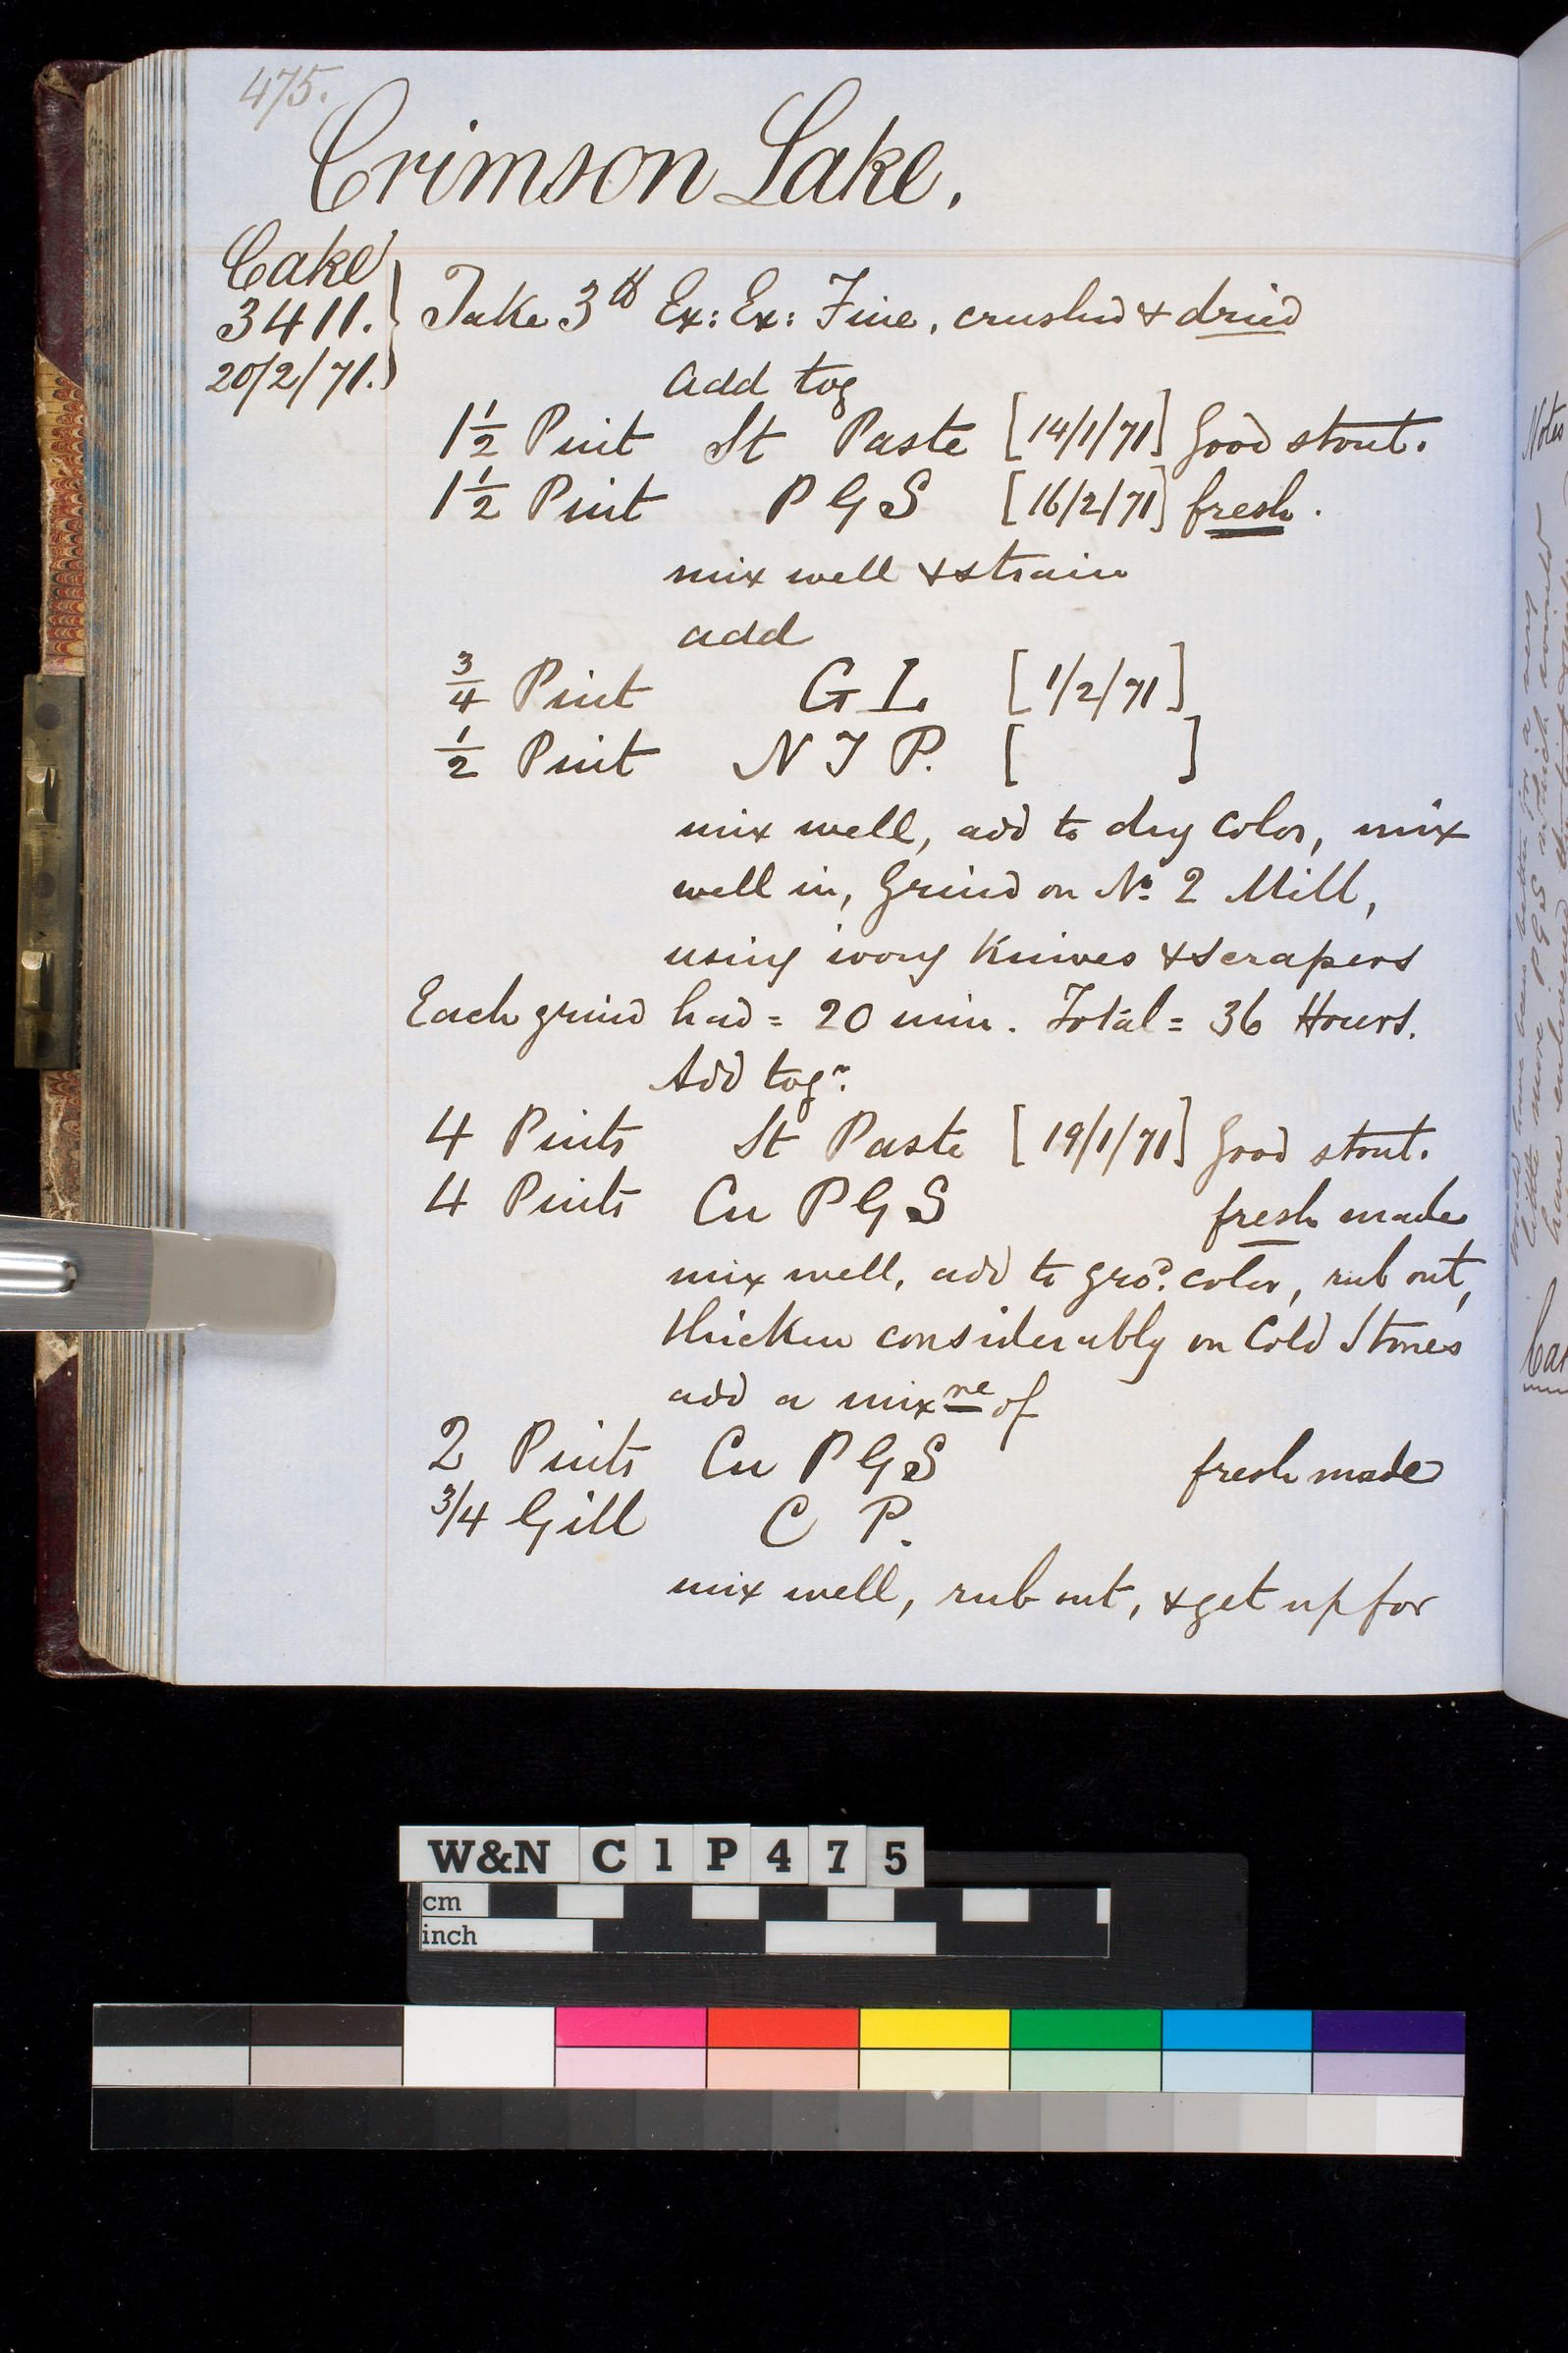 475.
Crimson Lake.
Cake
3411.
20/2/71.
Take 3 lb Ex: Ex: Fine, crushed & dried
add tog
1 1/2 Pint St Paste [14/1/71] good stout.
1 1/2 Pint P G S [16/2/71] fresh.
mix well & strain
add
3/4 Pint G L [1/2/71]
1/2 Pint N J P. [ ]
mix well, add to dry color, mix
well in, Grind on No. 2 Mill,
using ivory Knives & scrapers
Each grind had = 20 min. Total = 36 Hours.
Add togr.
4 Pints St Paste [19/1/71] good stout.
4 Pints Cu P G S fresh made
mix well, add to grod. color, rub out,
thicken considerably on Cold Stones
add a mixre of
2 Pints Cu P G S fresh made
3/4 Gill C P.
mix well, rub out, & get up for
Notes
W&N C1P475
cm
inch